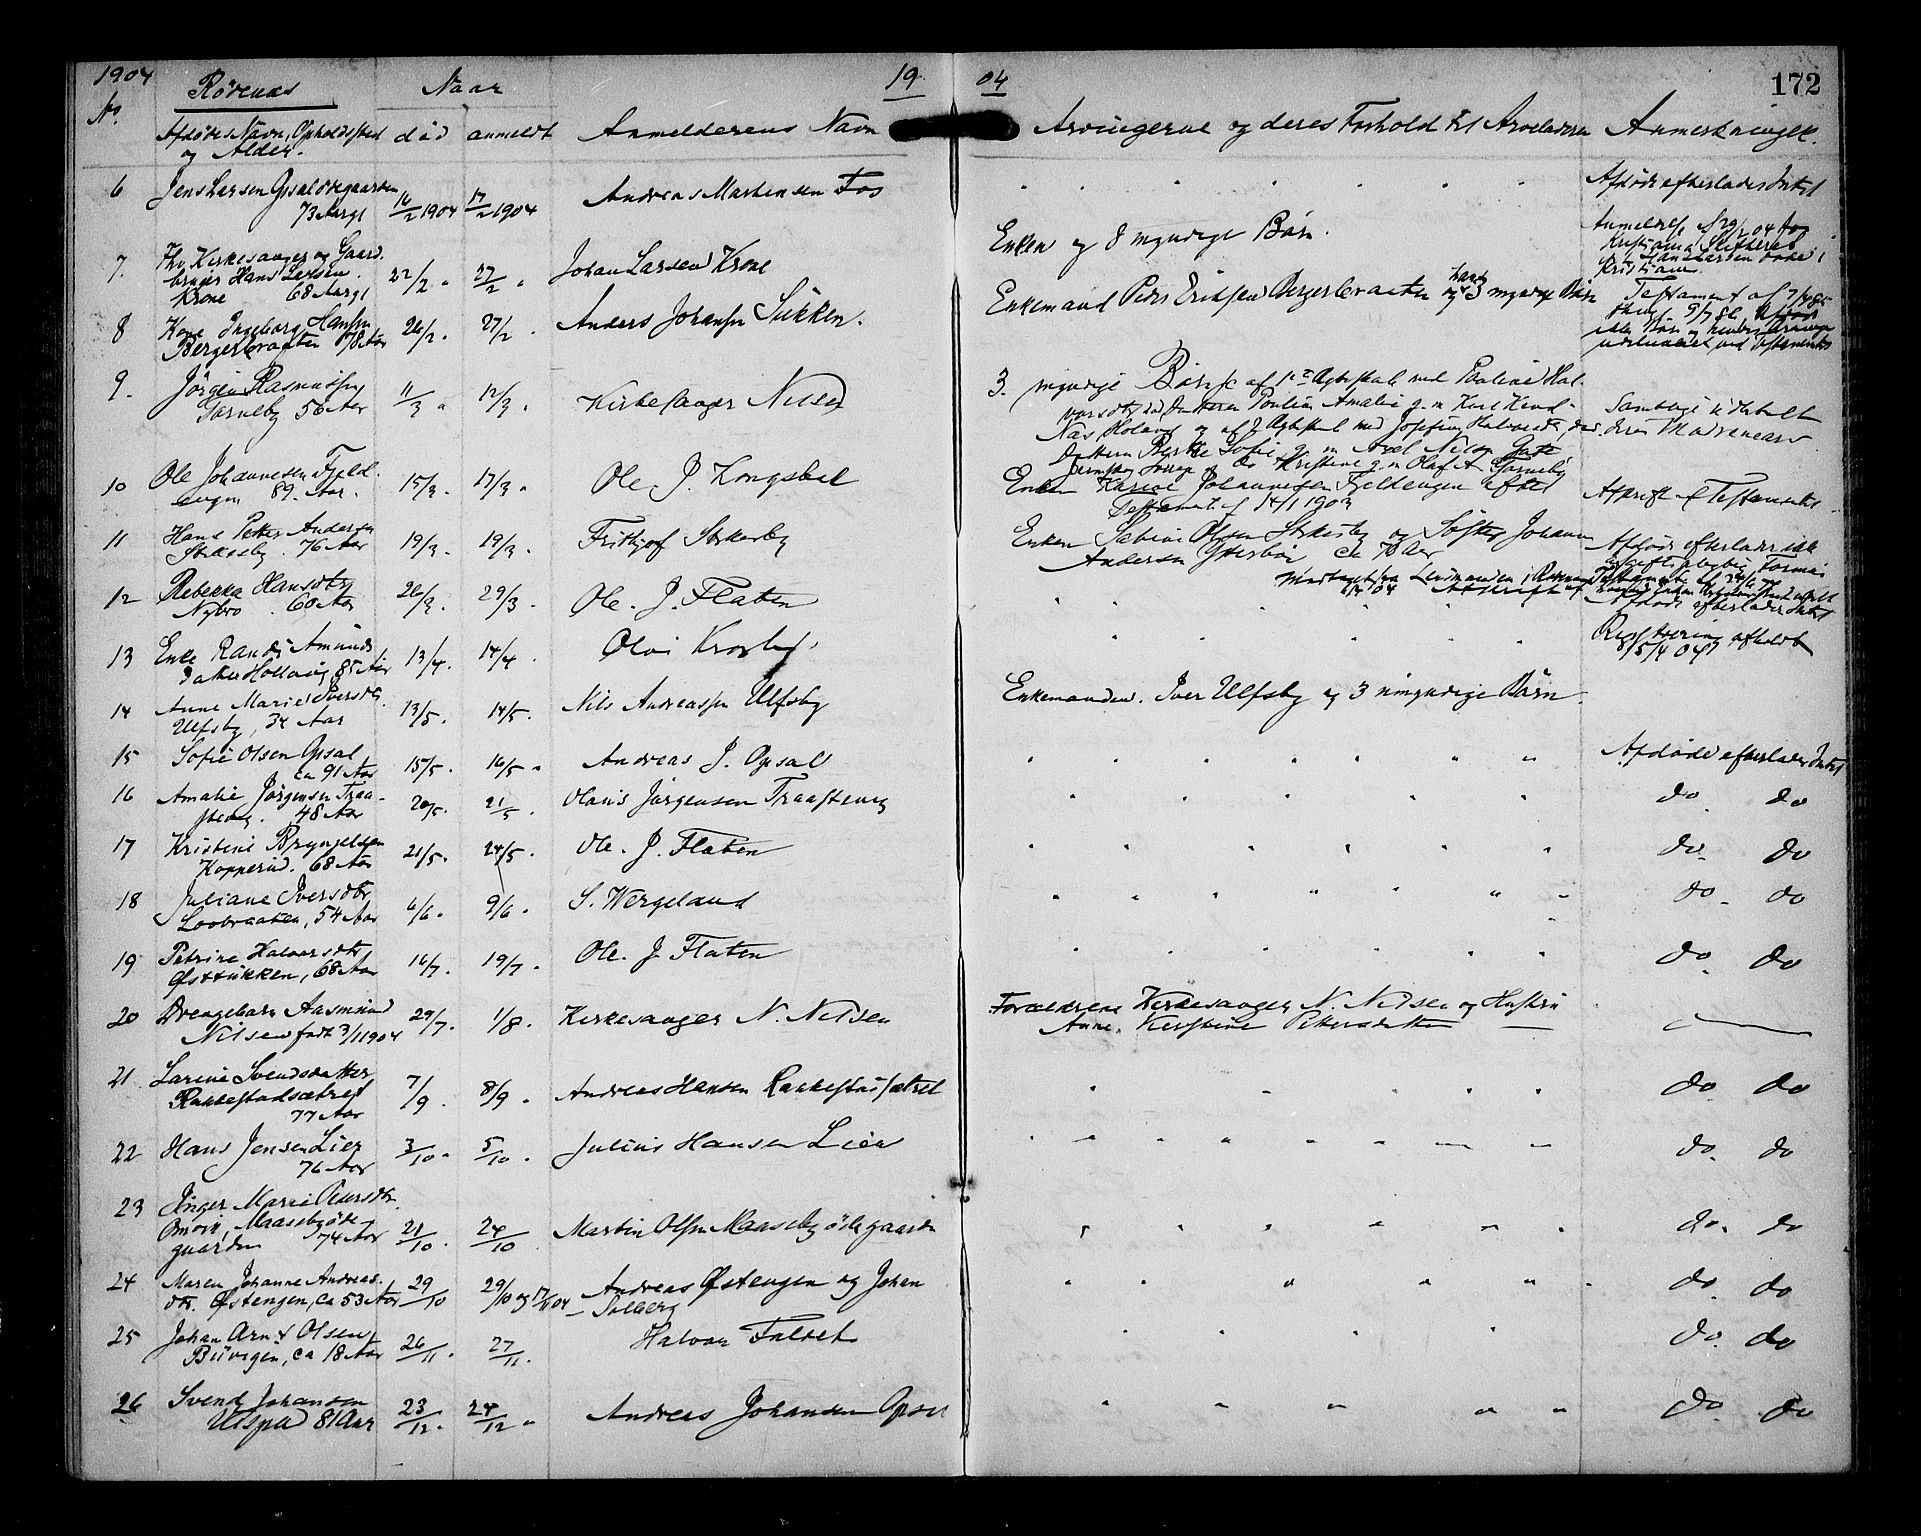 1904
19
04
172
No.
Rødenæs
Naar
Afdødes Navn, Opholdssted
og Alder.
død
anmeldt
Anmelderens Navn
Arvingerne og deres Forhold til Arveladeren
Anmerkninger.
6 Jens Larsen Opsalødegaarden
73 Aar gl 16/2 1904 17/2 1904 Andreas Martensen Fos
Afdøde efterlader Intet
7. Fhv. Kirkesanger og Gaard
bruger Hans Larsen
Krone 68 Aar gl 22/2 " 27/2 " Johan Larsen Krone
Enken og 8 myndige Børn.
Anmeldelse
Kristiania Skifteret
Hans Larsen døde i
Kristiania
8 Kone Ingeborg Hansen
Bergerbraaten 78 Aar 26/2 . 27/2 . Anders Johansen Sukken.
Enkemand Peder Eriksen Bergerbraaten og hans 3 myndige Børn
Testament af
ikke Børn og hendes Arvinger
udelukket ved Testamentet
9. Jørgen Rasmussen
Tørneby 56 Aar 11/3 " 12/3 . Kirkesanger Nilsen
3. myndige Børn af 1ste Ægteskab med Pauline Hal-
vorsdtr Datteren Pauline Amalie g. m. Karl
Næs Høland og af 2 Ægteskab med Josefine Halvorsdtr,
Datteren Berthe Sofie g. m. Axel Nilsen
og do Kristine g. m. Olaf A. Tørneby
Samtlige
10 Ole Johannesen Fjeld
engen 89. Aar. 15/3. 17/3 . Ole. J. Kongsbøl
Enken Karine Johannesen Fjeldengen efter
Testament af 14/1 1902
Afskrift af Testamentet
11 Hans Petter Andersen
Strkseby. 76 Aar 19/3. 19/3. Frithjof Strkseby
Enken Sabine Olsen og Søster Johanne
Andersen Ytterbøe ca 70 Aar
Afdøde efterlader ikke
12 Rebekka Hansdtr
Nybro . 60 Aar 26/3. 29/3. Ole. J. Flaten
Modtaget fra Lensmanden i Rødenæs
Afskrift af
Afdøde efterlader Intet
13 Enke Randi Amunds
datter Holtvig 85 Aar 13/4. 14/4 . Olai Krosby.
Registrering afholdt
14 Anne Marie Iversdtr.
Ulfsby, 34 Aar 13/5. 14/5. Nils Andreassen Ulfsby
Enkemanden. Iver Ulfsby og 3 umyndige Børn.
15 Sofie Olsen Opsal
ca 91 Aar 15/5. 16/5 " Andreas J. Opsal
Afdøde efterlader Intet
16 Amalie Jørgensen Traa-
steng. 48 Aar 20/5. 21/5 . Olavis Jørgensen Traasteng
do. do
17 Kristine Bryngelsen
Kopperud. 68 Aar 21/5. 24/5. Ole. J. Flaten
do. do
18 Juliane Iversdtr
Loobraaten, 54 Aar 6/6. 9/6 . S. Wergeland
do. do
19 Petrine Halvorsdtr
Østtukken, 68 Aar 16/7. 19/7 . Ole. J Flaten
do. do
20 Drengebarn Aasmund
Nilsen født 3/1 1904 29/7. 1/8. Kirkesanger N. Nilsen
Forældrene Kirkesanger N. Nilsen og Hustru
Anne. Kirstine Pettersdatter
21 Larine Svendsdatter
Rakkestadsætret
77 Aar 7/9 . 8/9 . Andreas Hansen Rakkestadsætret
do do
22 Hans Jensen Lier
76 Aar 3/10 . 5/10 . Julius Hansen Lier
do. do
23 Inger Marie Pedersdtr.
Maasebyøde-
gaarden 74 Aar 21/10 . 24/10 Martin Olsen Maasebyødegaarden
do. do
24 Maren Johanne Andreas-
dtr. Østengen, ca 53 Aar 29/10 29/10 og 17/11 04 Andreas Østengen og Johan
Solberg
do. do
25 Johan Arnt Olsen
ca 18 Aar 26/11 . 27/11 . Halvor Faltet
do. do
26 Svend Johansen
Ulspa 81 Aar 23/12 . 24/12 " Andreas Johansen Opsal
do. do